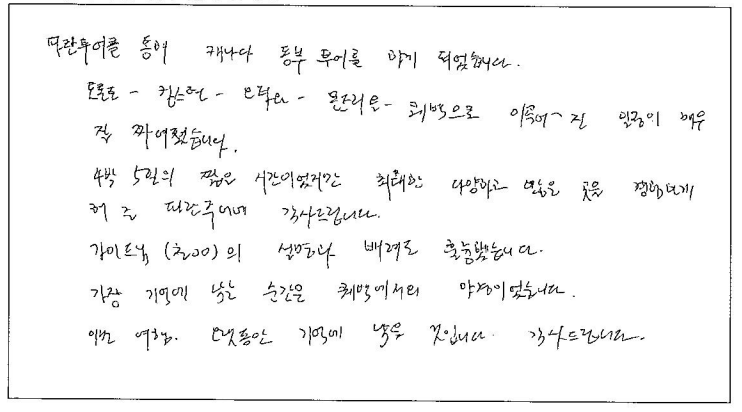 파란투어를 통해 캐나다 동부 투어를 하게 되었습니다.
토론토 - 킹스턴 - 오타와 - 몬트리올 - 퀘백으로 이루어 진 일정이 매우
잘 짜여졌습니다.
4박 5일의 짧은 시간이었지만 최대한 다양하고 많은 곳을 경험하게
해 준 파란투어에 감사드립니다.
가이드님 (최OO)의 설명과 배려도 훌륭했습니다.
가장 기억에 남는 순간은 퀘백에서의 야경이었습니다.
이번 여행. 오랫동안 기억에 남을 것입니다. 감사드립니다.